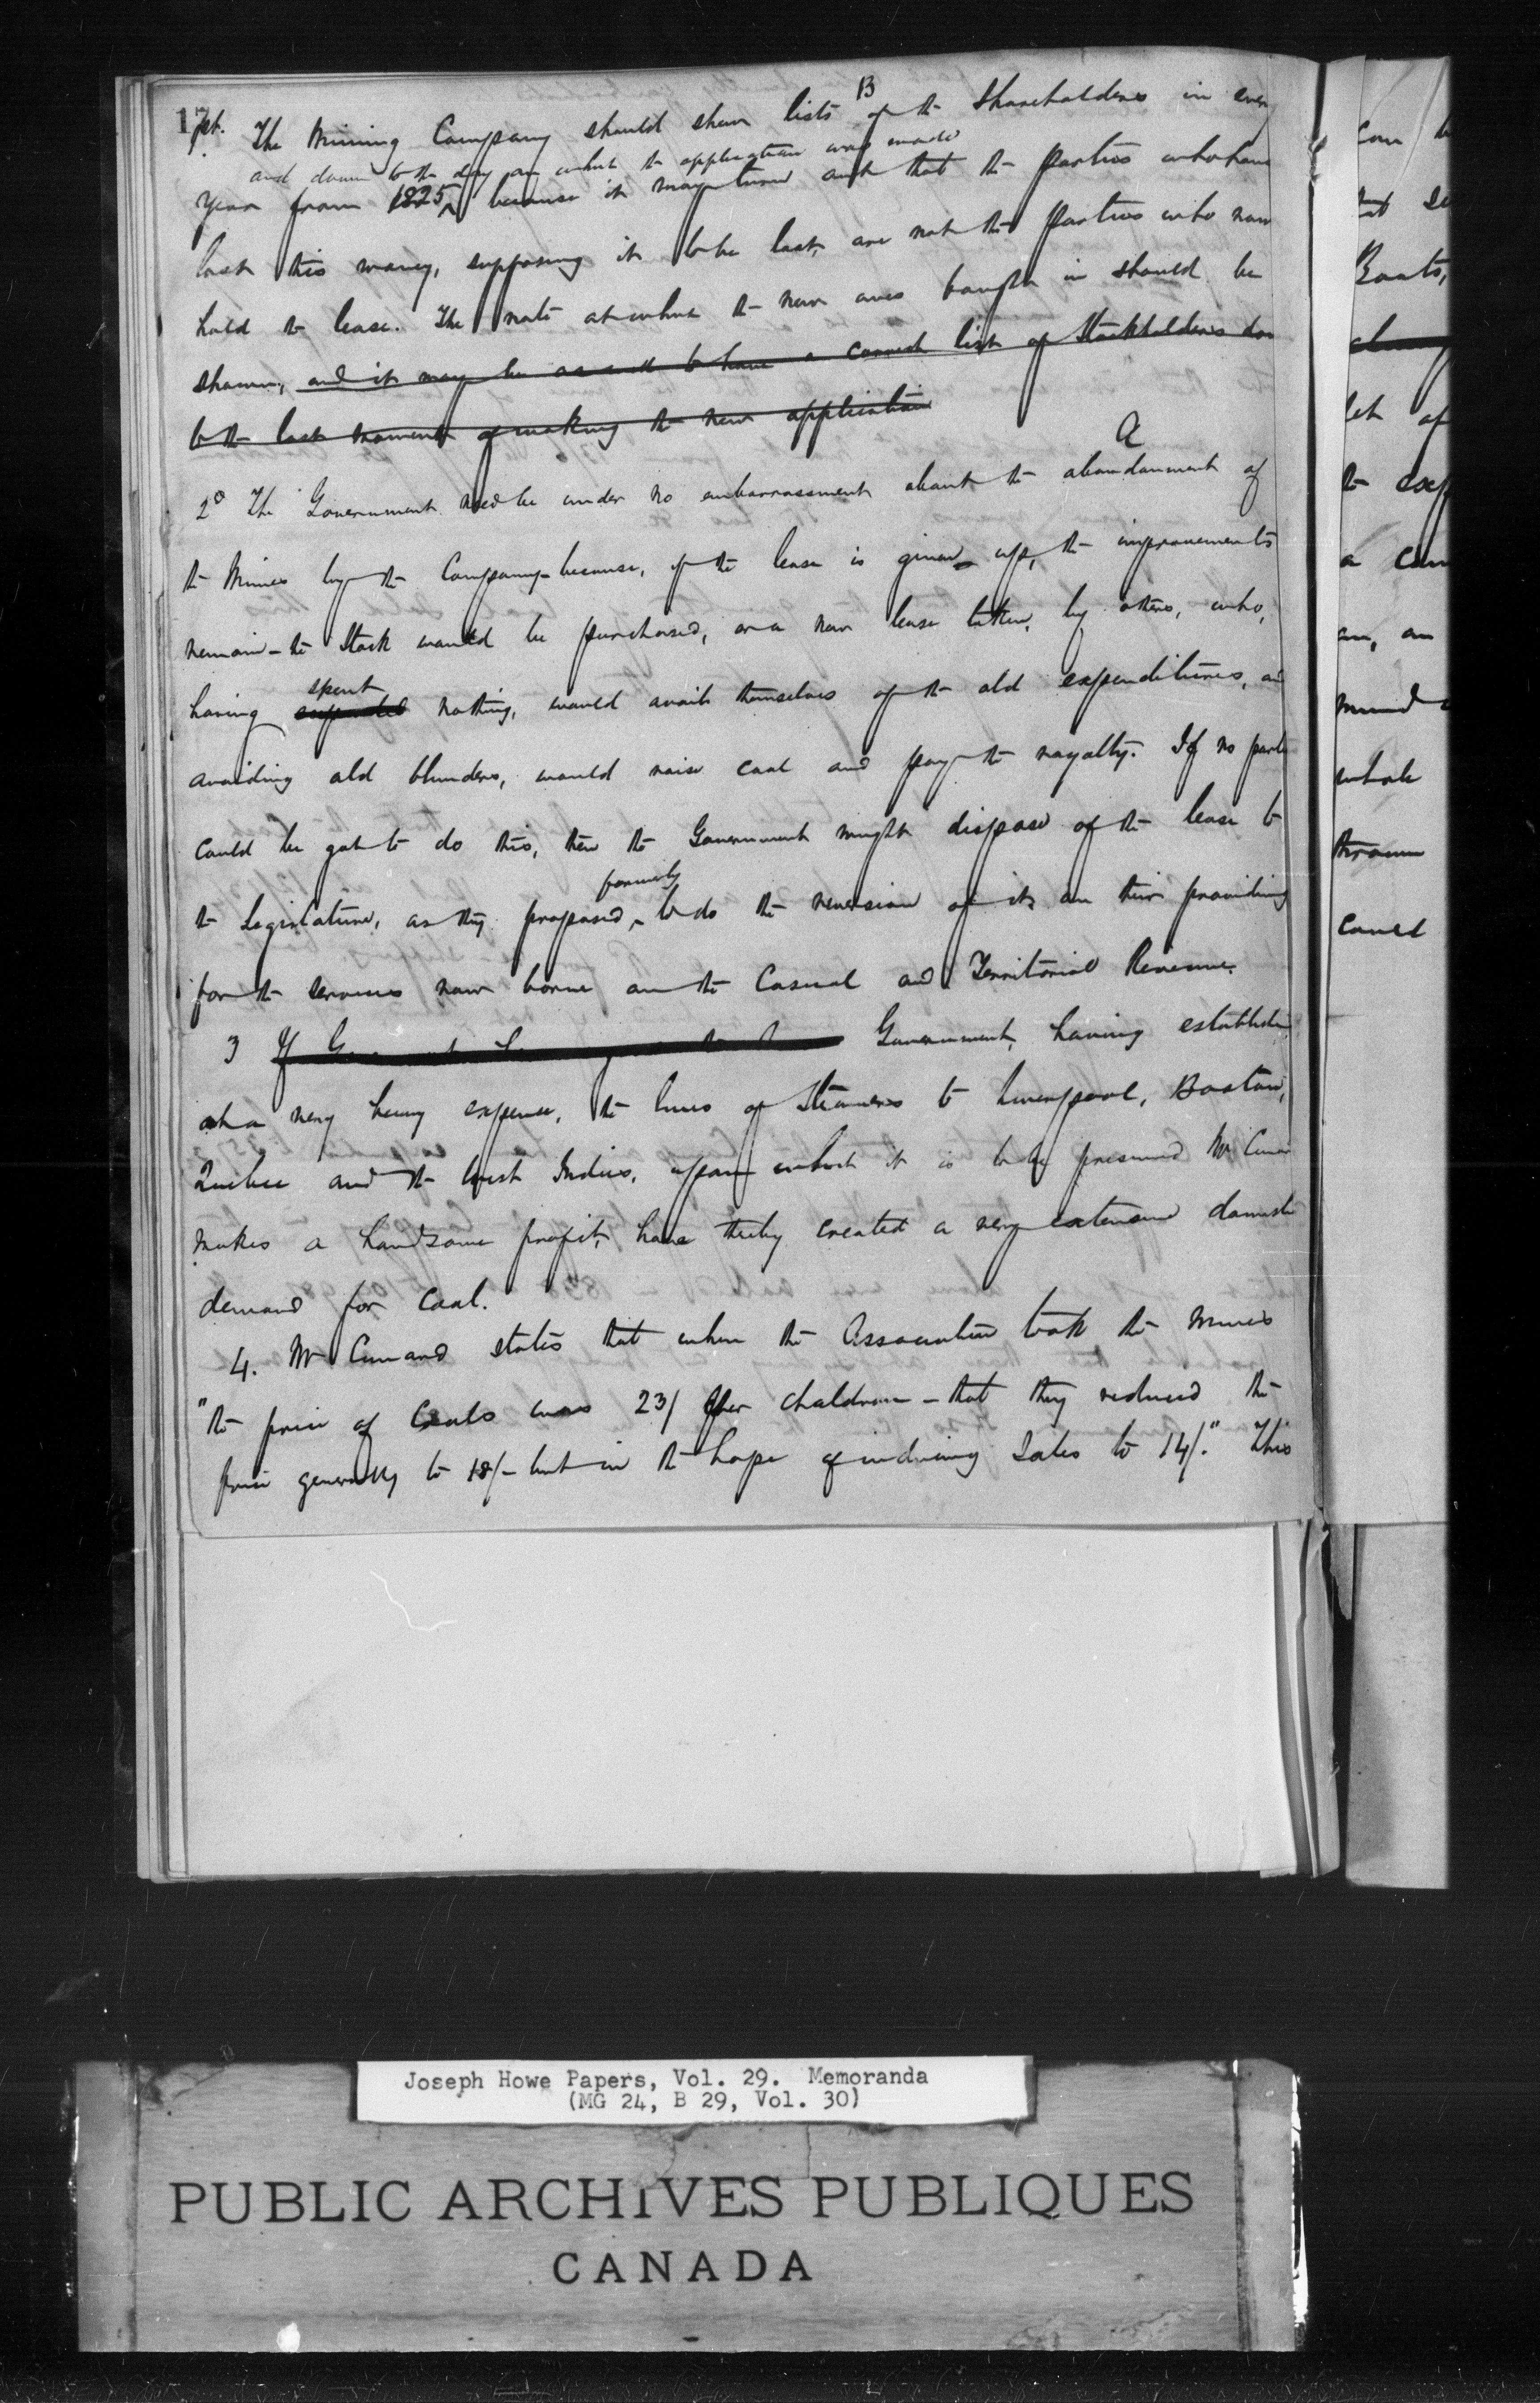 17
B
1st. The Mining Company should shew lists of the Shareholders in every
and down to the day on which the application was made
year from 1825, because it may turn out that the parties who have
lost this money, supposing it to be lost, are not the parties who now
hold the lease. The rate at which the new ones bought in should be
shewn, and it may be as well to have a correct list of Stockholders down
to the last moment of making the new application
A
2º The Government need be under no embarrassment about the abandonment of
the Mines by the Company – because, if the lease is given up, the improvements
remain – the Stock would be purchased, or a new lease taken, by others, who,
spent
having expended nothing, would avail themselves of the old expenditures, and
avoiding old blunders, would raise coal and pay the royalty. If no party
could be got to do this, then the Government might dispose of the lease to
formerly
the Legislature, as they proposed to do the reversion of it, on their providing
for the services now borne on the Casual and Territorial Revenue.
3 If Government Government, having established
at a very heavy expense, the lines of Steamers to Liverpool, Boston,
Quebec and the West Indies, upon which it is to be presumed Mr Cunard
makes a handsome profit, have thereby created a very extensive domestic
demand for Coal.
4. Mr Cunard states that when the Association took the Mines
"the price of Coals was 23/ per chaldron – that they reduced the
price generally to 18/ – but in the hope of inducing Sales to 14/." This
Boats,
let of
the exp
a
an, an
mind
whole
thrown
could
Joseph Howe Papers, Vol. 29. Memoranda
(MG 24, B 29, Vol. 30)
PUBLIC ARCHIVES PUBLIQUES
CANADA